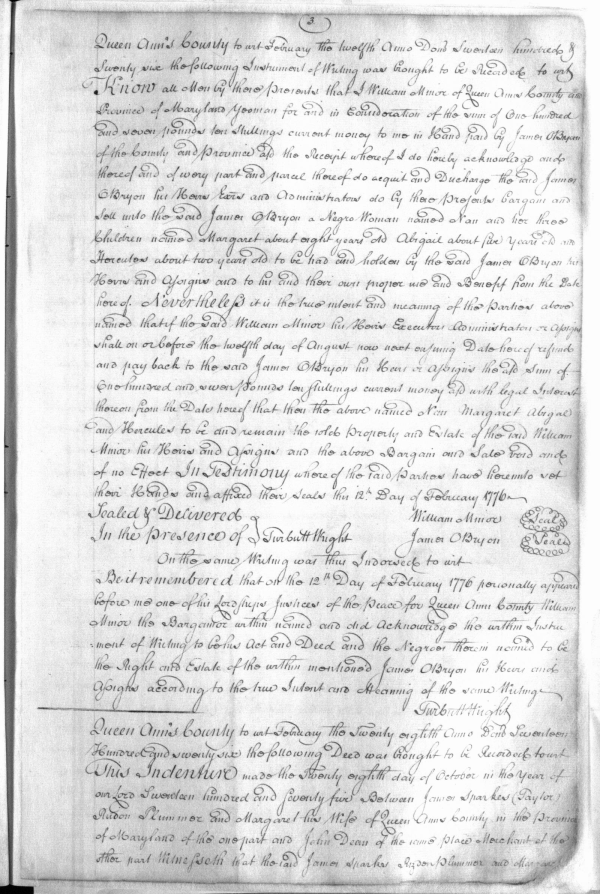 3
Queen Ann's County to wit February the twelfth Anno Domi Seventeen hundred &
Seventy six the following Instrument of Writing was brought to be Recorded to wit
Know all Men by these Presents that I William Minor of Queen Anns County and
Province of Maryland Yeoman for and in Consideration of the sum of One hundred
and seven pounds ten Shillings current money to me in Hand paid by James OBryon
of the County and Province afd the Receipt whereof I do hereby acknowledge and
thereof and of every part and parcel thereof do acquit and Discharge the said James
OBryon his Heirs Exrs and Administrators do by these presents bargain and
Sell unto the said James OBryon a Negro Woman named Nan and her three
Children named Margaret about eight years old Abigail about five Years old and
Hercules about two years old to be had and holden by the said James OBryon his
Heirs and Assigns and to his and their own proper use and Benefit from the Date
hereof. Nevertheless it is the true intent and meaning of the Parties above
named that if the said William Minor his Heirs Executors Administrators or Assigns
shall on or before the twelfth day of August now next ensuing Date hereof refund
and pay back to the said James OBryon his Heirs or Assigns the afd Sum of
One hundred and seven Pounds ten shillings current money afd with legal Interest
thereon from the Date hereof that then the above named Nan Margaret Abigal
and Hercules to be and remain the sole Property and Estate of the said William
Minor his Heirs and Assigns and the above Bargain and Sale void and
of no Effect In Testimony whereof the said Parties have hereunto set
their Hands and affixed their Seals this 12th Day of February 1776
Sealed & Delivered William Minor Seal
In the Presence of Turbutt Wright James OBryon Seal
On the same Writing was thus Indorsed to wit
Be it remembered that on the 12th Day of February 1776 personally appeared
before me one of his Lordships Justices of the Peace for Queen Anns County William
Minor the Bargainor within named and did Acknowledge the within Instru
-ment of Writing to be his Act and Deed and the Negroes therein named to be
the Right and Estate of the within mentioned James OBryon his Heirs and
Assigns according to the true Intent and Meaning of the same Writing
Turbutt Wright
Queen Ann's County to wit February the Twenty eighth Anno Domi Seventeen
Hundred and seventy six the following Deed was brought to be Recorded to wit
This Indenture made the Twenty eighth day of October in the Year of
our Lord Seventeen hundred and seventy five Between James Sparkes (Taylor)
Plummer and Margaret his Wife of Queen Anns County in the Province
of Maryland of the one part and John Dean of the same Place Merchant of the
other part Witnesseth that the said James Sparkes Plummer and